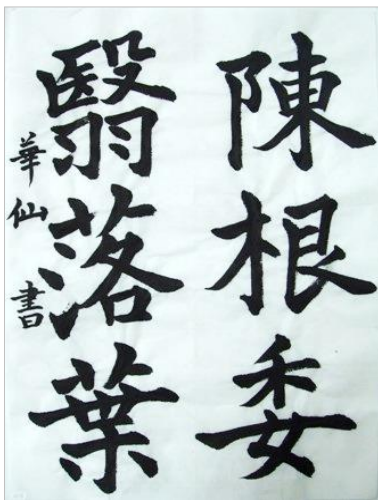 陳根委
翳落葉
華仙書